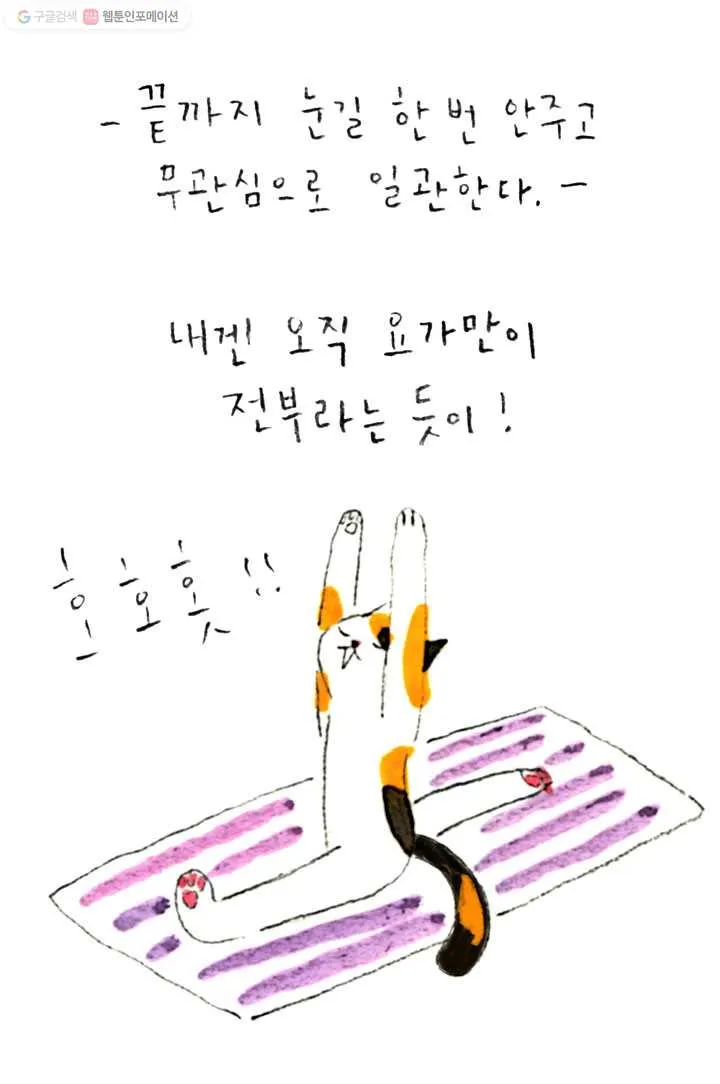 구글검색 웹툰인포메이션
- 끝까지 눈길 한 번 안주고
무관심으로 일관한다. -
내겐 오직 요가만이
전부라는 듯이!
호호홋!!